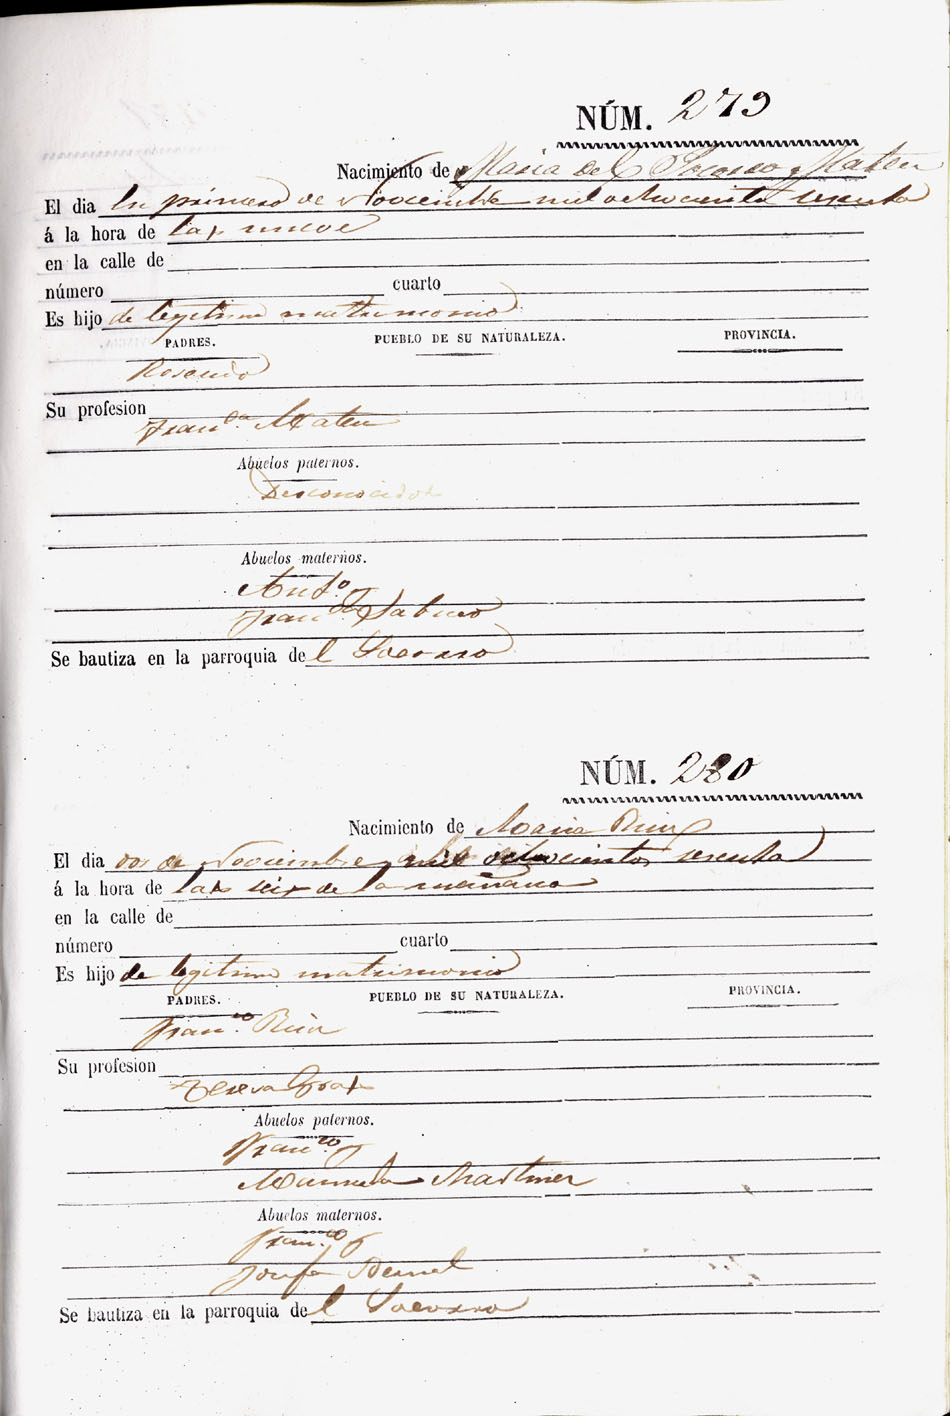 NÚM. 279
Nacimiento de María del Socorro y Mateu
El dia primero de Noviembre mil ochocientos sesenta
á la hora de las nueve
en la calle de
número cuarto
Es hijo de legitimo matrimonio
PADRES. PUEBLO DE SU NATURALEZA. PROVINCIA.
Rosendo
Su profesion
Fran.ca Mateu
Abuelos paternos.
Desconocidos
Abuelos maternos.
Ant.o
Fran.ca
Se bautiza en la parroquia de l Socorro
NÚM. 280
Nacimiento de Maria Ruiz
El dia dos de Noviembre mil ochocientos sesenta
á la hora de las seis de la mañana
en la calle de
número cuarto
Es hijo de legitimo matrimonio
PADRES. PUEBLO DE SU NATURALEZA. PROVINCIA.
Fran.co Ruiz
Su profesion
Teresa
Abuelos paternos.
Fran.co y
Manuela Martinez
Abuelos maternos.
Fran.co y
Josefa Bernal
Se bautiza en la parroquia de l Socorro